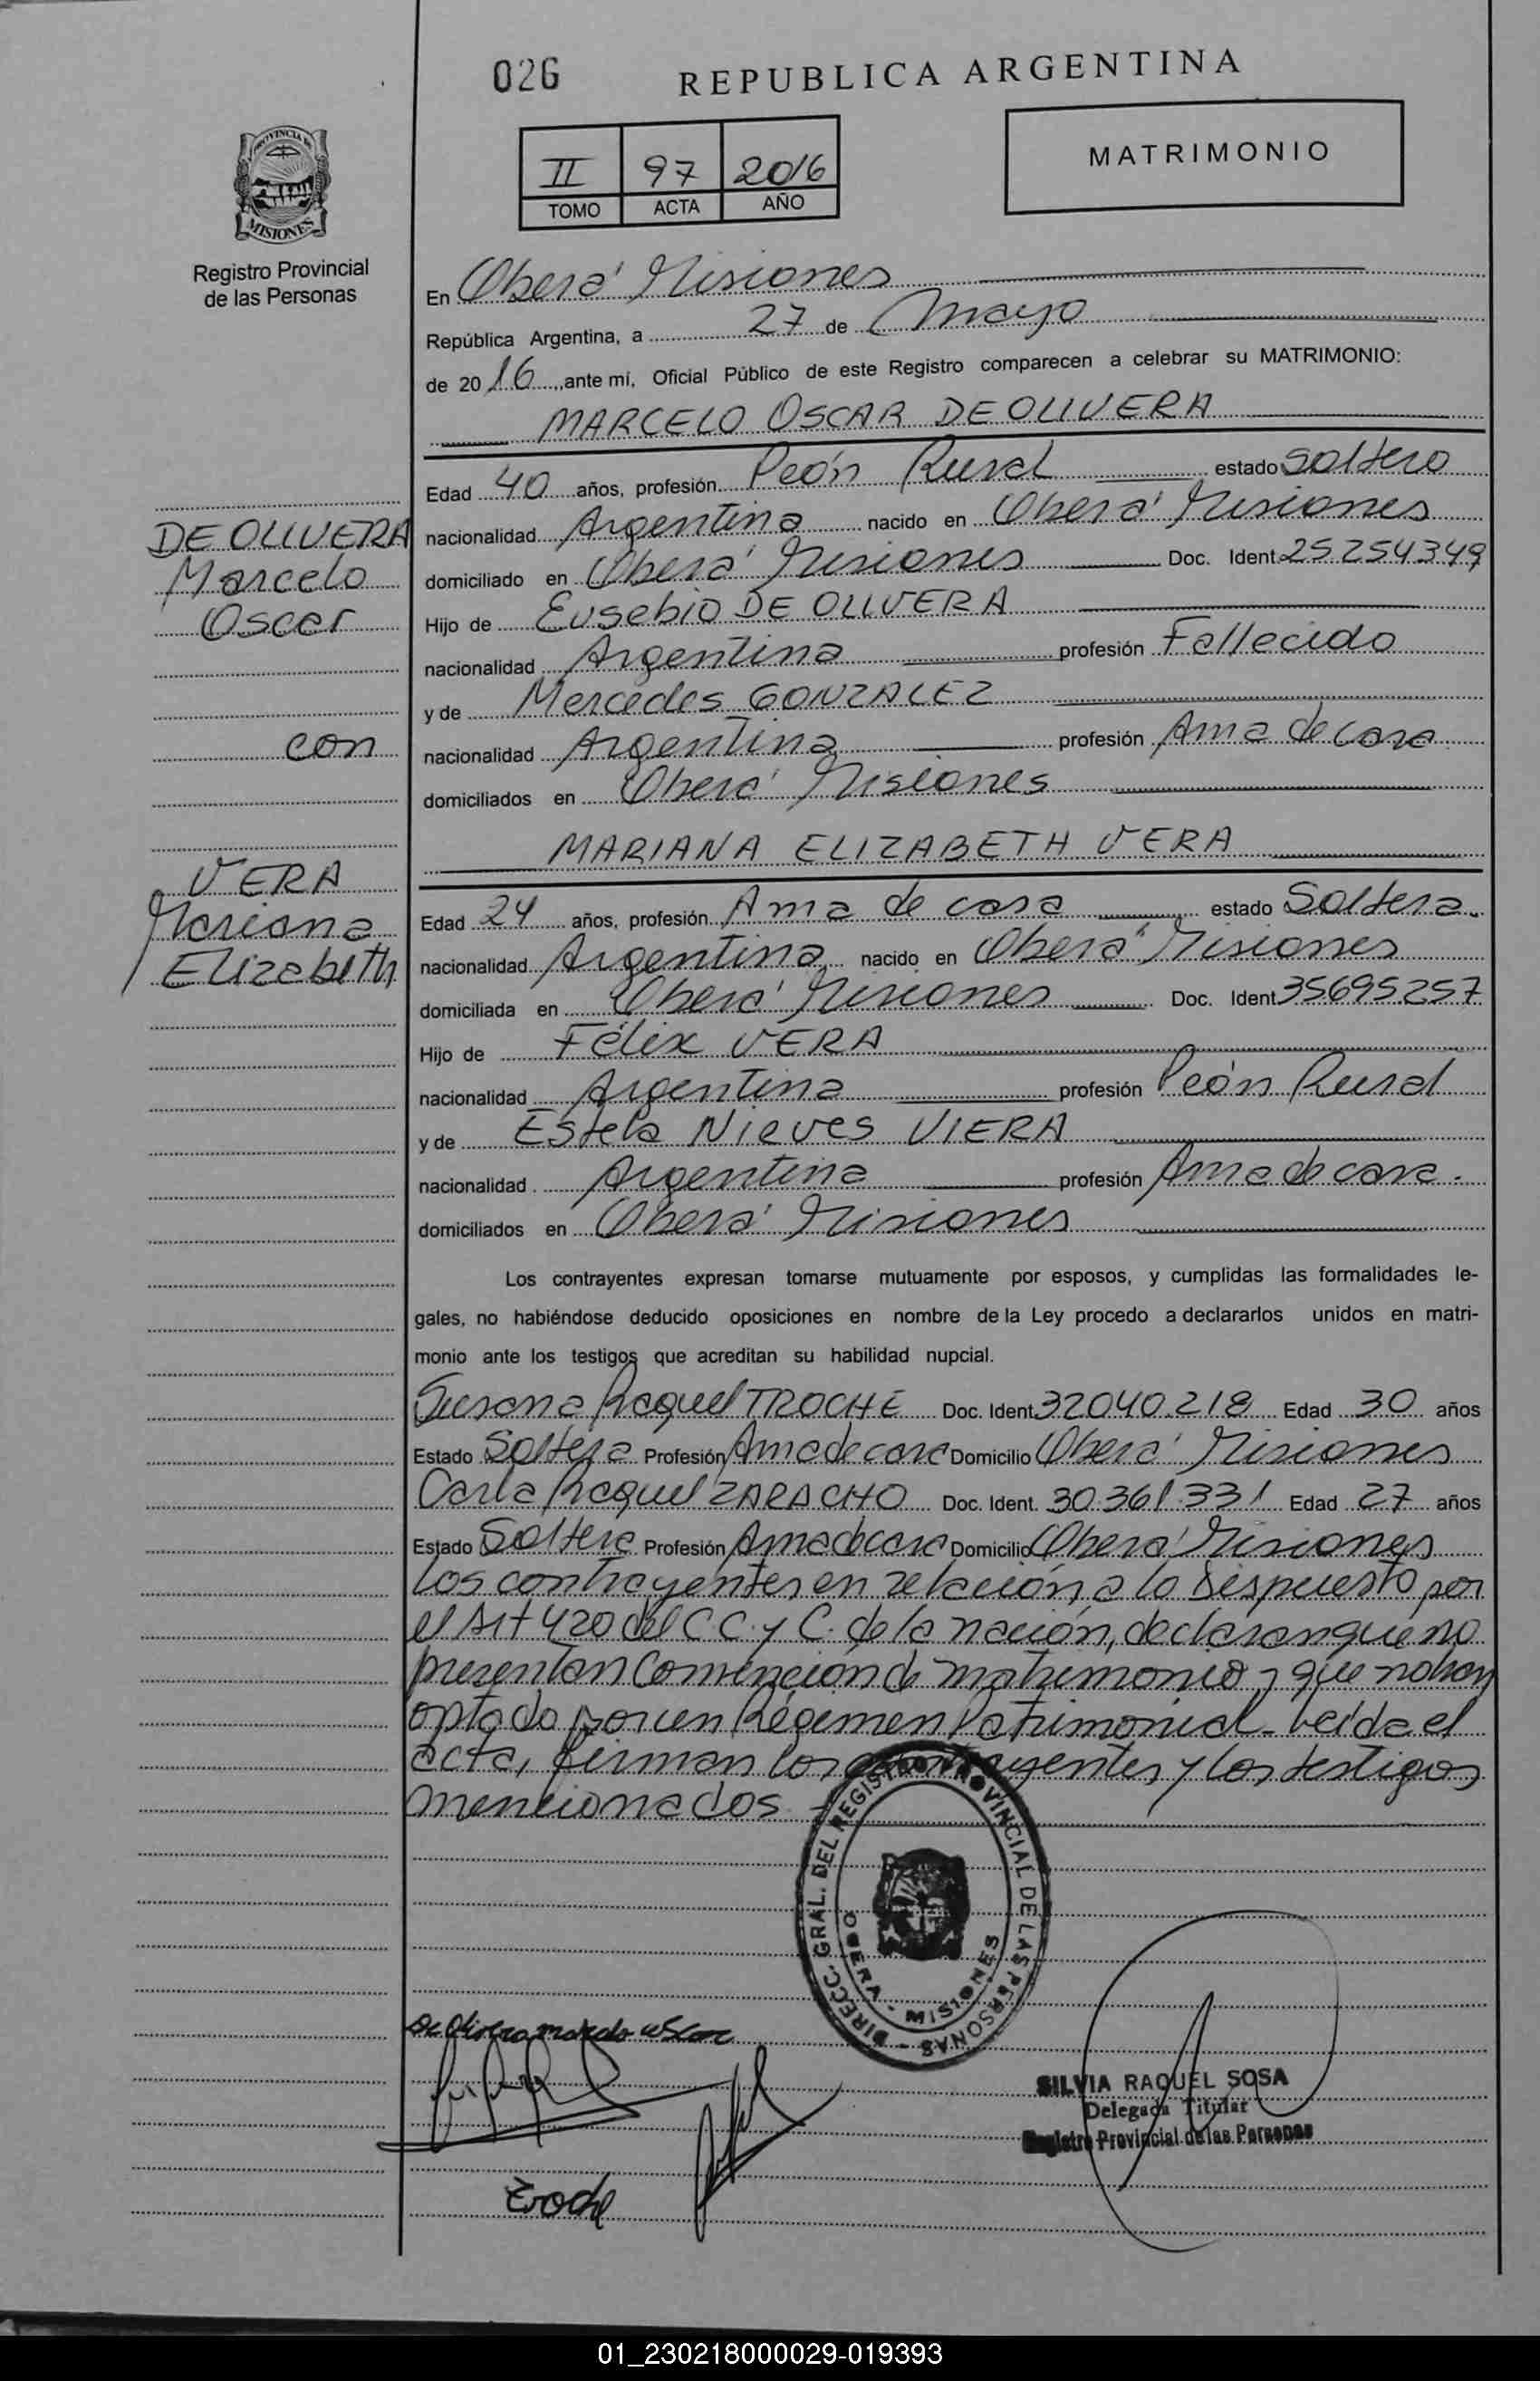 026
REPUBLICA ARGENTINA
PROVINCIA DE
MISIONES
Registro Provincial
de las Personas
II 97 2016
TOMO ACTA AÑO
MATRIMONIO
En Oberá Misiones
República Argentina, a 27 de Mayo
de 2016, ante mí, Oficial Público de este Registro comparecen a celebrar su MATRIMONIO:
MARCELO OSCAR DE OLIVERA
Edad 40 años, profesión Peón Rural estado soltero
nacionalidad Argentina nacido en Oberá Misiones
domiciliado en Oberá Misiones Doc. Ident. 25.254.349
Hijo de Eusebio DE OLIVERA
nacionalidad Argentina profesión Fallecido
y de Mercedes GONZALEZ
nacionalidad Argentina profesión Ama de casa
domiciliados en Oberá Misiones
DE OLIVERA
Marcelo
Oscar
con
VERA
Mariana
Elizabeth
MARIANA ELIZABETH VERA
Edad 24 años, profesión Ama de casa estado Soltera.
nacionalidad Argentina nacido en Oberá Misiones
domiciliada en Oberá Misiones Doc. Ident. 35695257
Hijo de Félix VERA
nacionalidad Argentina profesión Peón Rural
y de Estela Nieves VIERA
nacionalidad Argentina profesión Ama de casa.
domiciliados en Oberá Misiones
Los contrayentes expresan tomarse mutuamente por esposos, y cumplidas las formalidades le-
gales, no habiéndose deducido oposiciones en nombre de la Ley procedo a declararlos unidos en matri-
monio ante los testigos que acreditan su habilidad nupcial.
Susana Raquel TROCHE Doc. Ident. 32040.218 Edad 30 años
Estado Soltera Profesión Ama de casa Domicilio Oberá Misiones
Carla Raquel ZARACHO Doc. Ident. 30.361.331 Edad 27 años
Estado Soltera Profesión Ama de casa Domicilio Oberá Misiones
Los contrayentes en relación a lo dispuesto por
el Art 420 del C C. y C. de la nación, declaran que no
presentan Convención de matrimonio y que no han
optado por un Régimen Patrimonial. Leída el
acta, firman los contrayentes y los testigos
mencionados
DIRECC. GRAL. DEL REGISTRO PROVINCIAL DE LAS PERSONAS
OBERA - MISIONES
SILVIA RAQUEL SOSA
Delegada Titular
Registro Provincial de las Personas
Troche
01_230218000029-019393